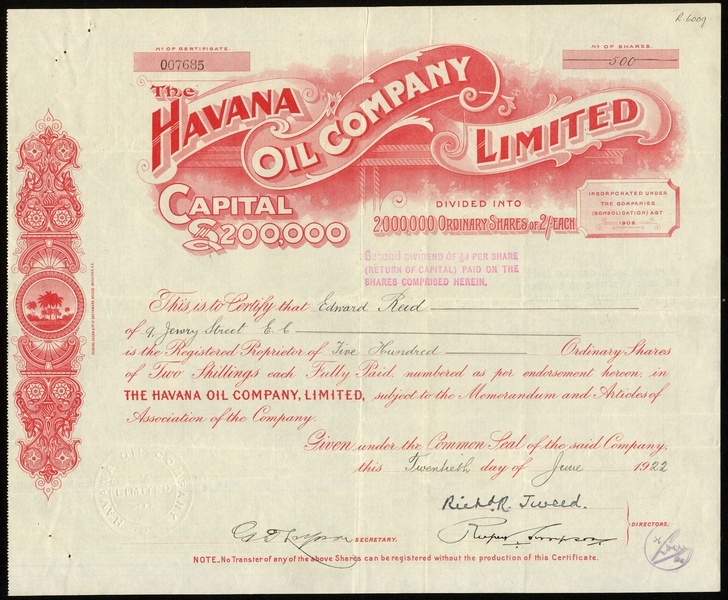 R.6009
No OF CERTIFICATE.
007685
No OF SHARES.
500
The
HAVANA OIL COMPANY LIMITED
CAPITAL
£200,000
DIVIDED INTO
2,000,000 ORDINARY SHARES OF 2/- EACH
INCORPORATED UNDER
THE COMPANIES
(CONSOLIDATION) ACT
1908.
Second DIVIDEND OF PER SHARE
(RETURN OF CAPITAL) PAID ON THE
SHARES COMPRISED HEREIN.
This is to Certify that Edward Reid
of 9, Jewry Street E.C
is the Registered Proprietor of Five Hundred Ordinary Shares
of Two Shillings each Fully Paid, numbered as per endorsement hereon, in
THE HAVANA OIL COMPANY, LIMITED, subject to the Memorandum and Articles of
Association of the Company.
Given under the Common Seal of the said Company,
this Twentieth day of June 1922
HAVANA OIL COMPANY
LIMITED
Richd. R. Tweed.
SECRETARY.
DIRECTORS.
NOTE. No Transfer of any of the above Shares can be registered without the production of this Certificate.